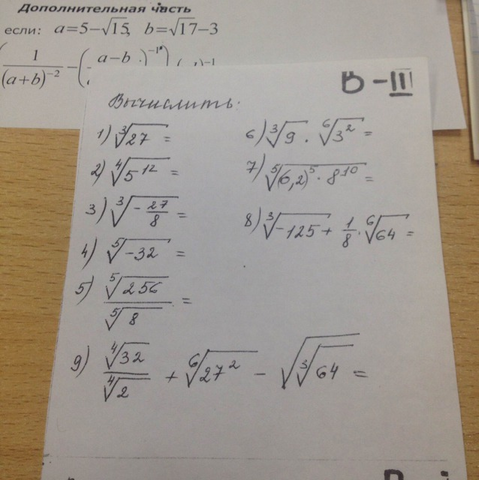 Дополнительная часть
если: a=5−√15, b=√17−3
(1/(a+b)⁻² − (a−b
В – III
Вычислить:
1) ∛27 =
2) ∜5¹² =
3) ∛(−27/8) =
4) ⁵√−32 =
5) ⁵√256 / ⁵√8 =
6) ∛9 · ⁶√3² =
7) ⁵√((6,2)⁵ · 8¹⁰) =
8) ∛−125 + 1/8 · ⁶√64 =
9) ∜32 / ∜2 + ⁶√27² − √∛64 =